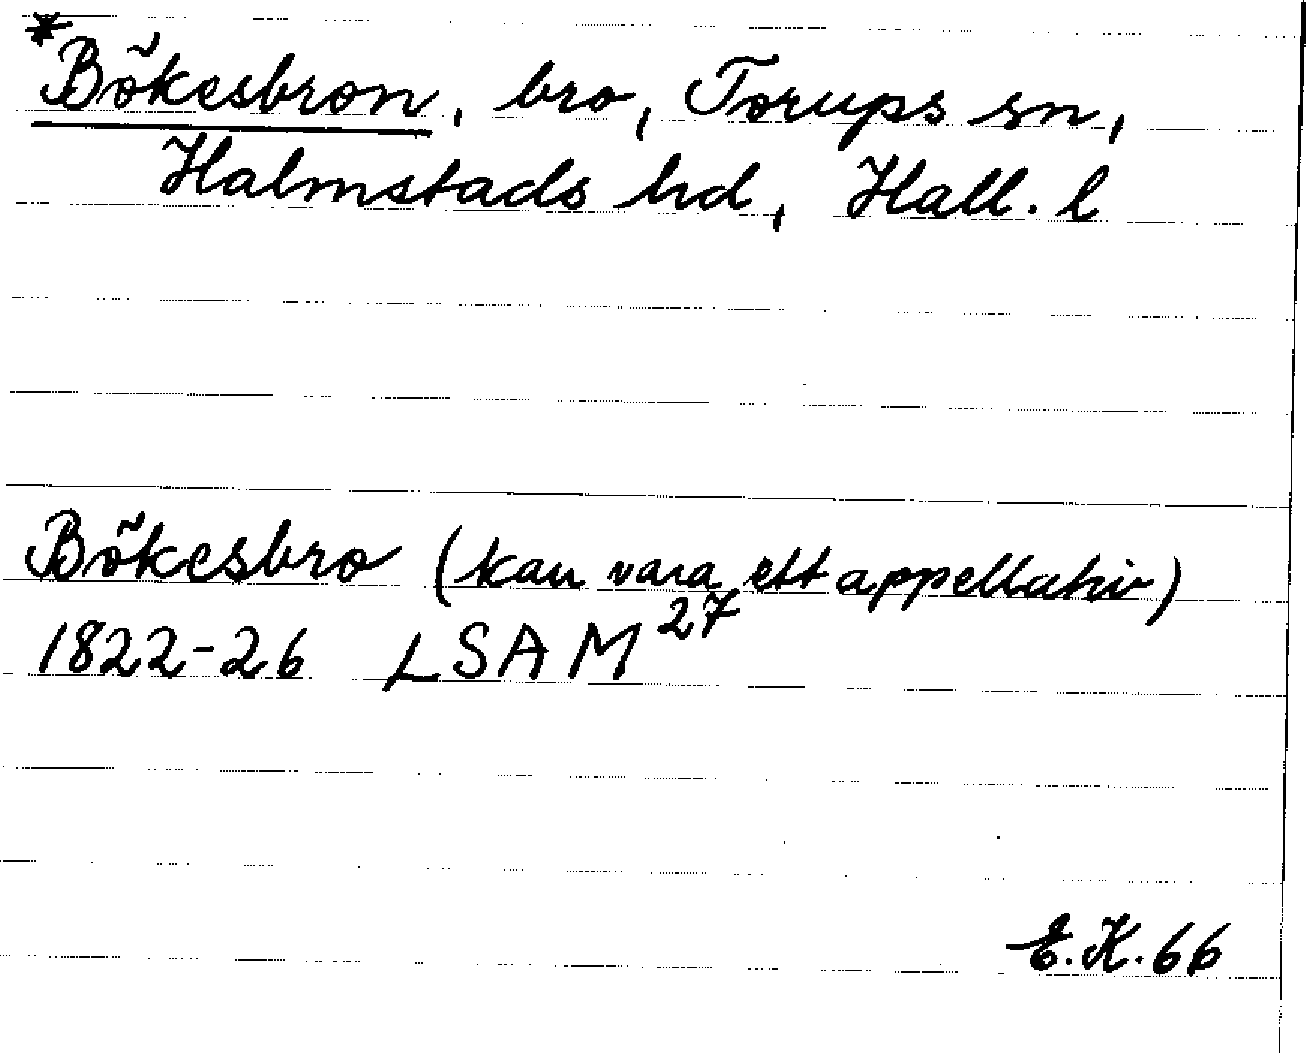 *Bökesbron, bro, Torups sn,
Halmstads hd, Hall. l
Bökesbro (kan vara ett appellativ)
1822-26 LSA M27
E.K. 66